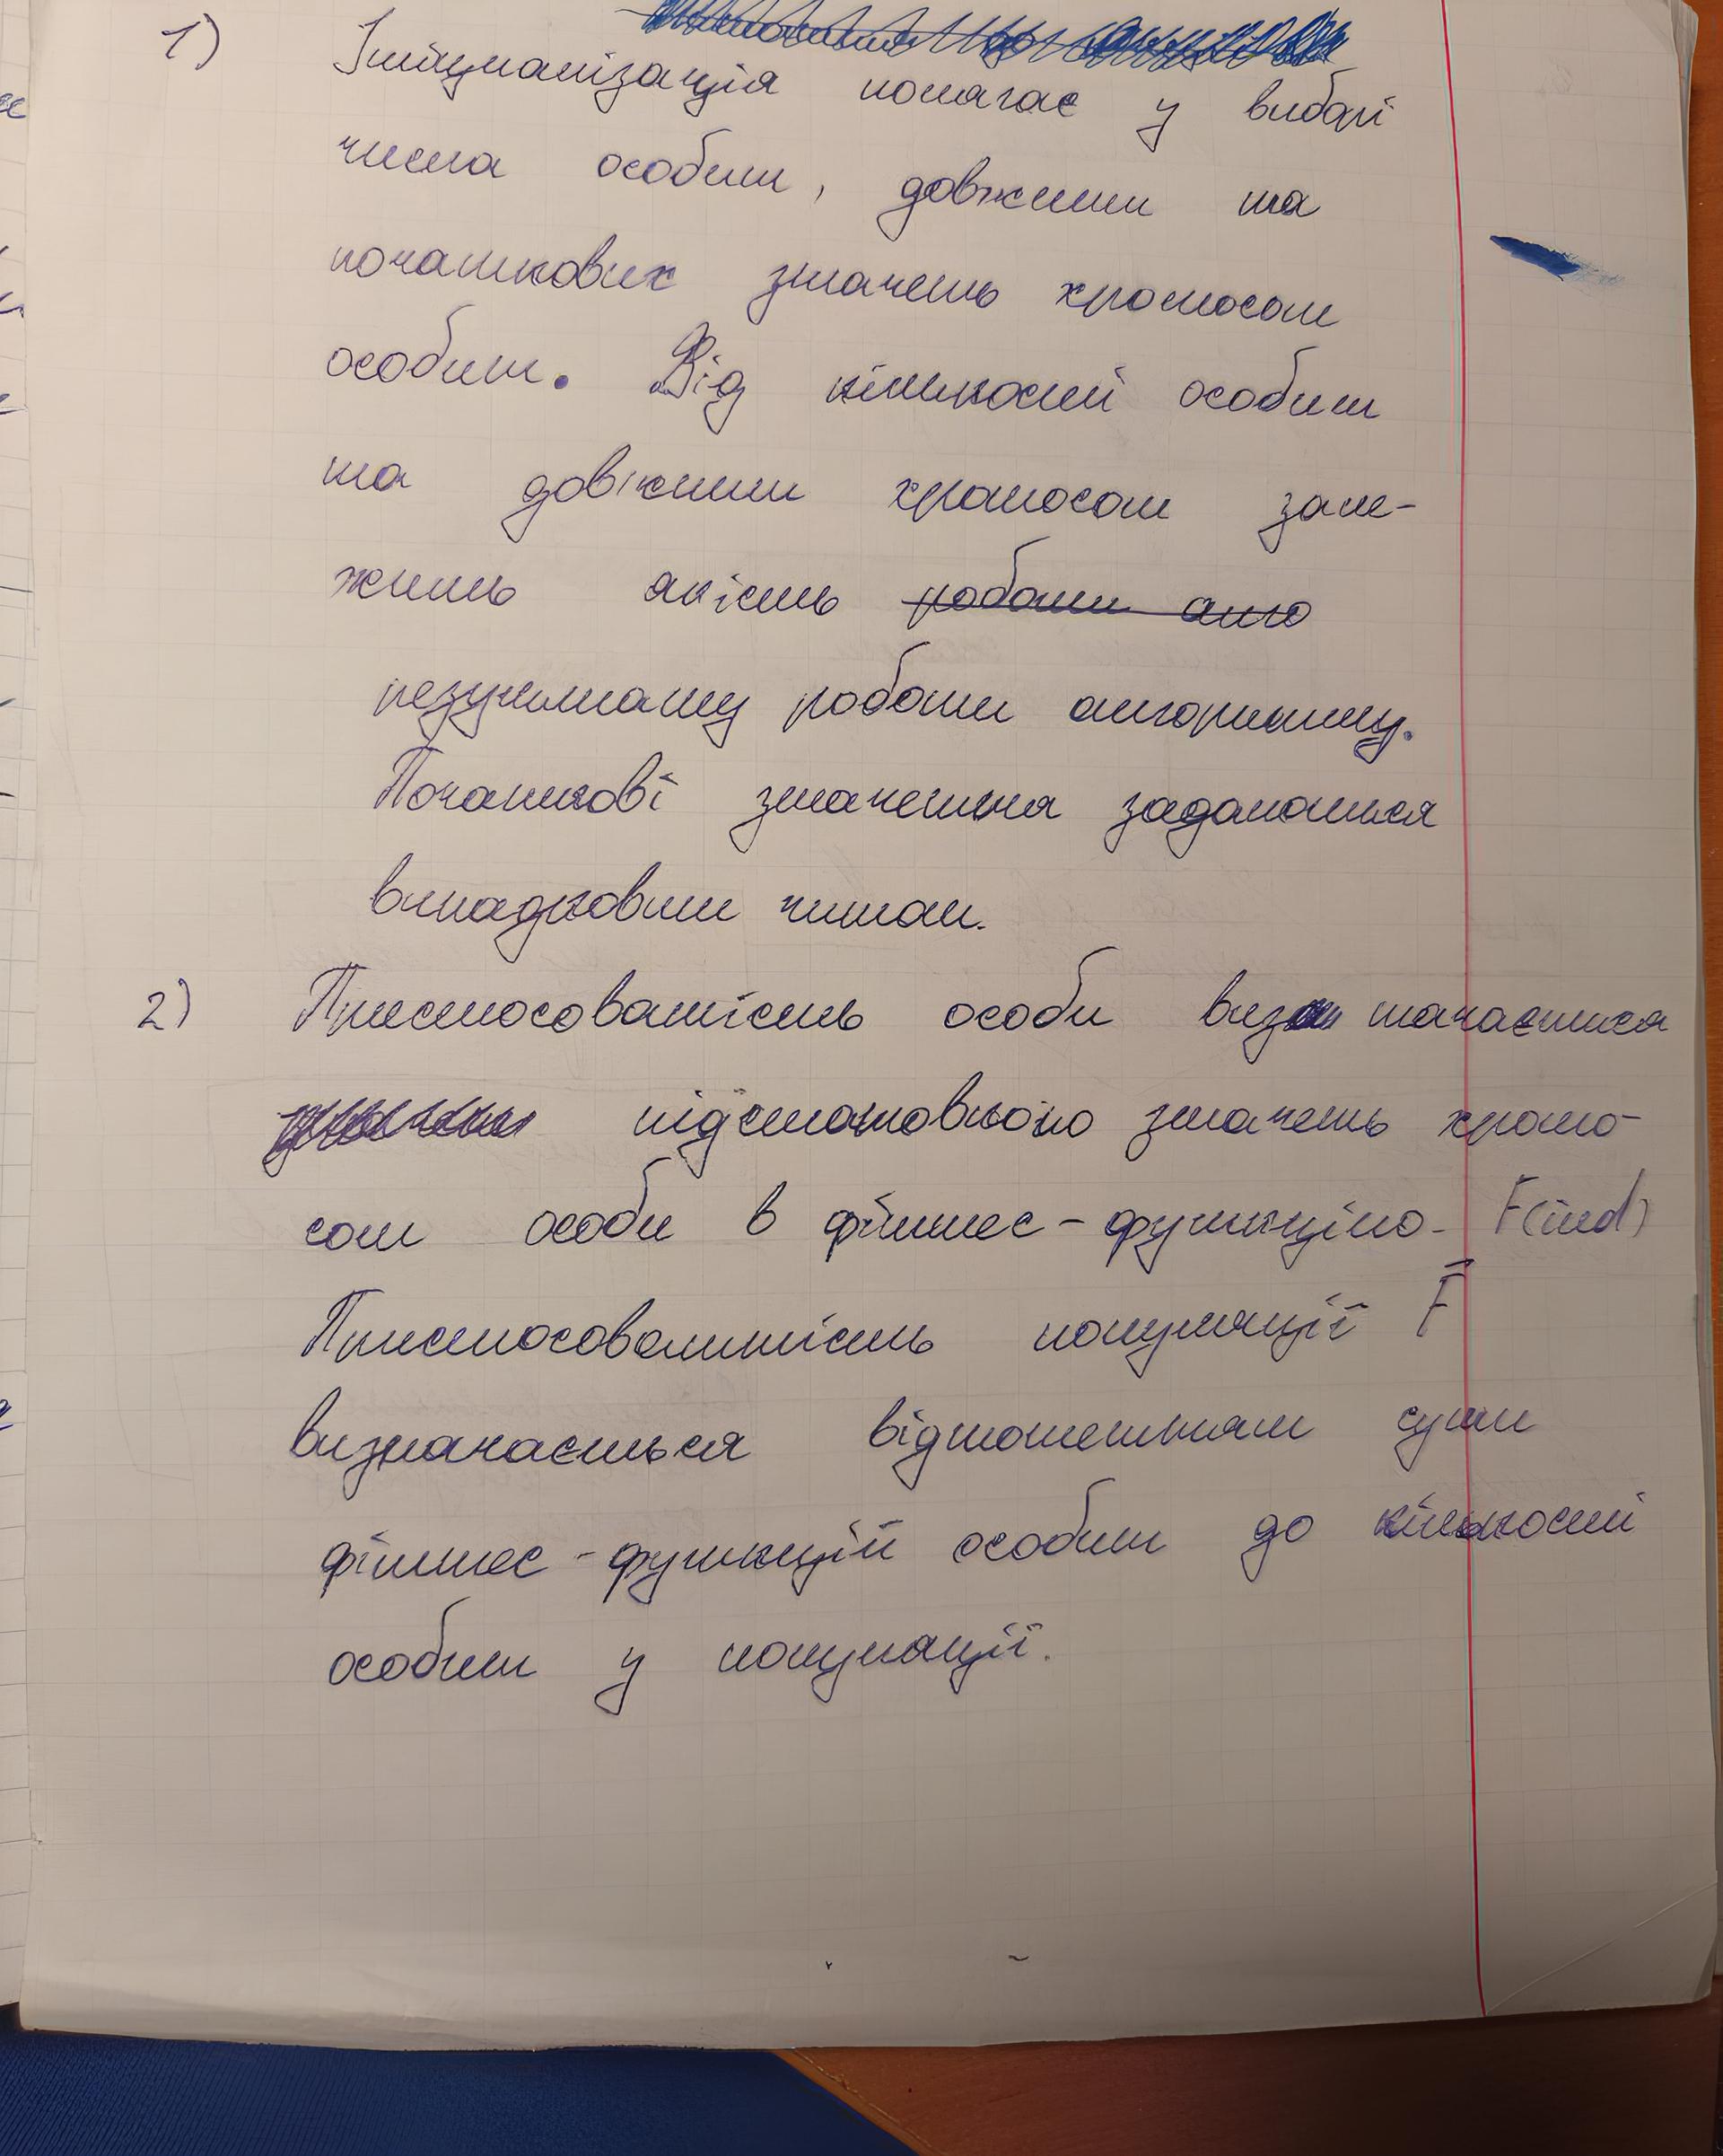 1) Ініціалізація полягає у виборі
числа особин, довжини та
початкових значень хромосом
особин. Від кількості особин
та довжини хромосом зале-
жить якість роботи алго
результату роботи алгоритму.
Початкові значення задаються
випадковим чином.
2) Пристосованість особи визначається
підстановкою значень хромо-
сом особи в фітнес-функцію F(ind)
Пристосованність популяції F̅
визначається відношенням суми
фітнес-функцій особин до кількості
особин у популяції.